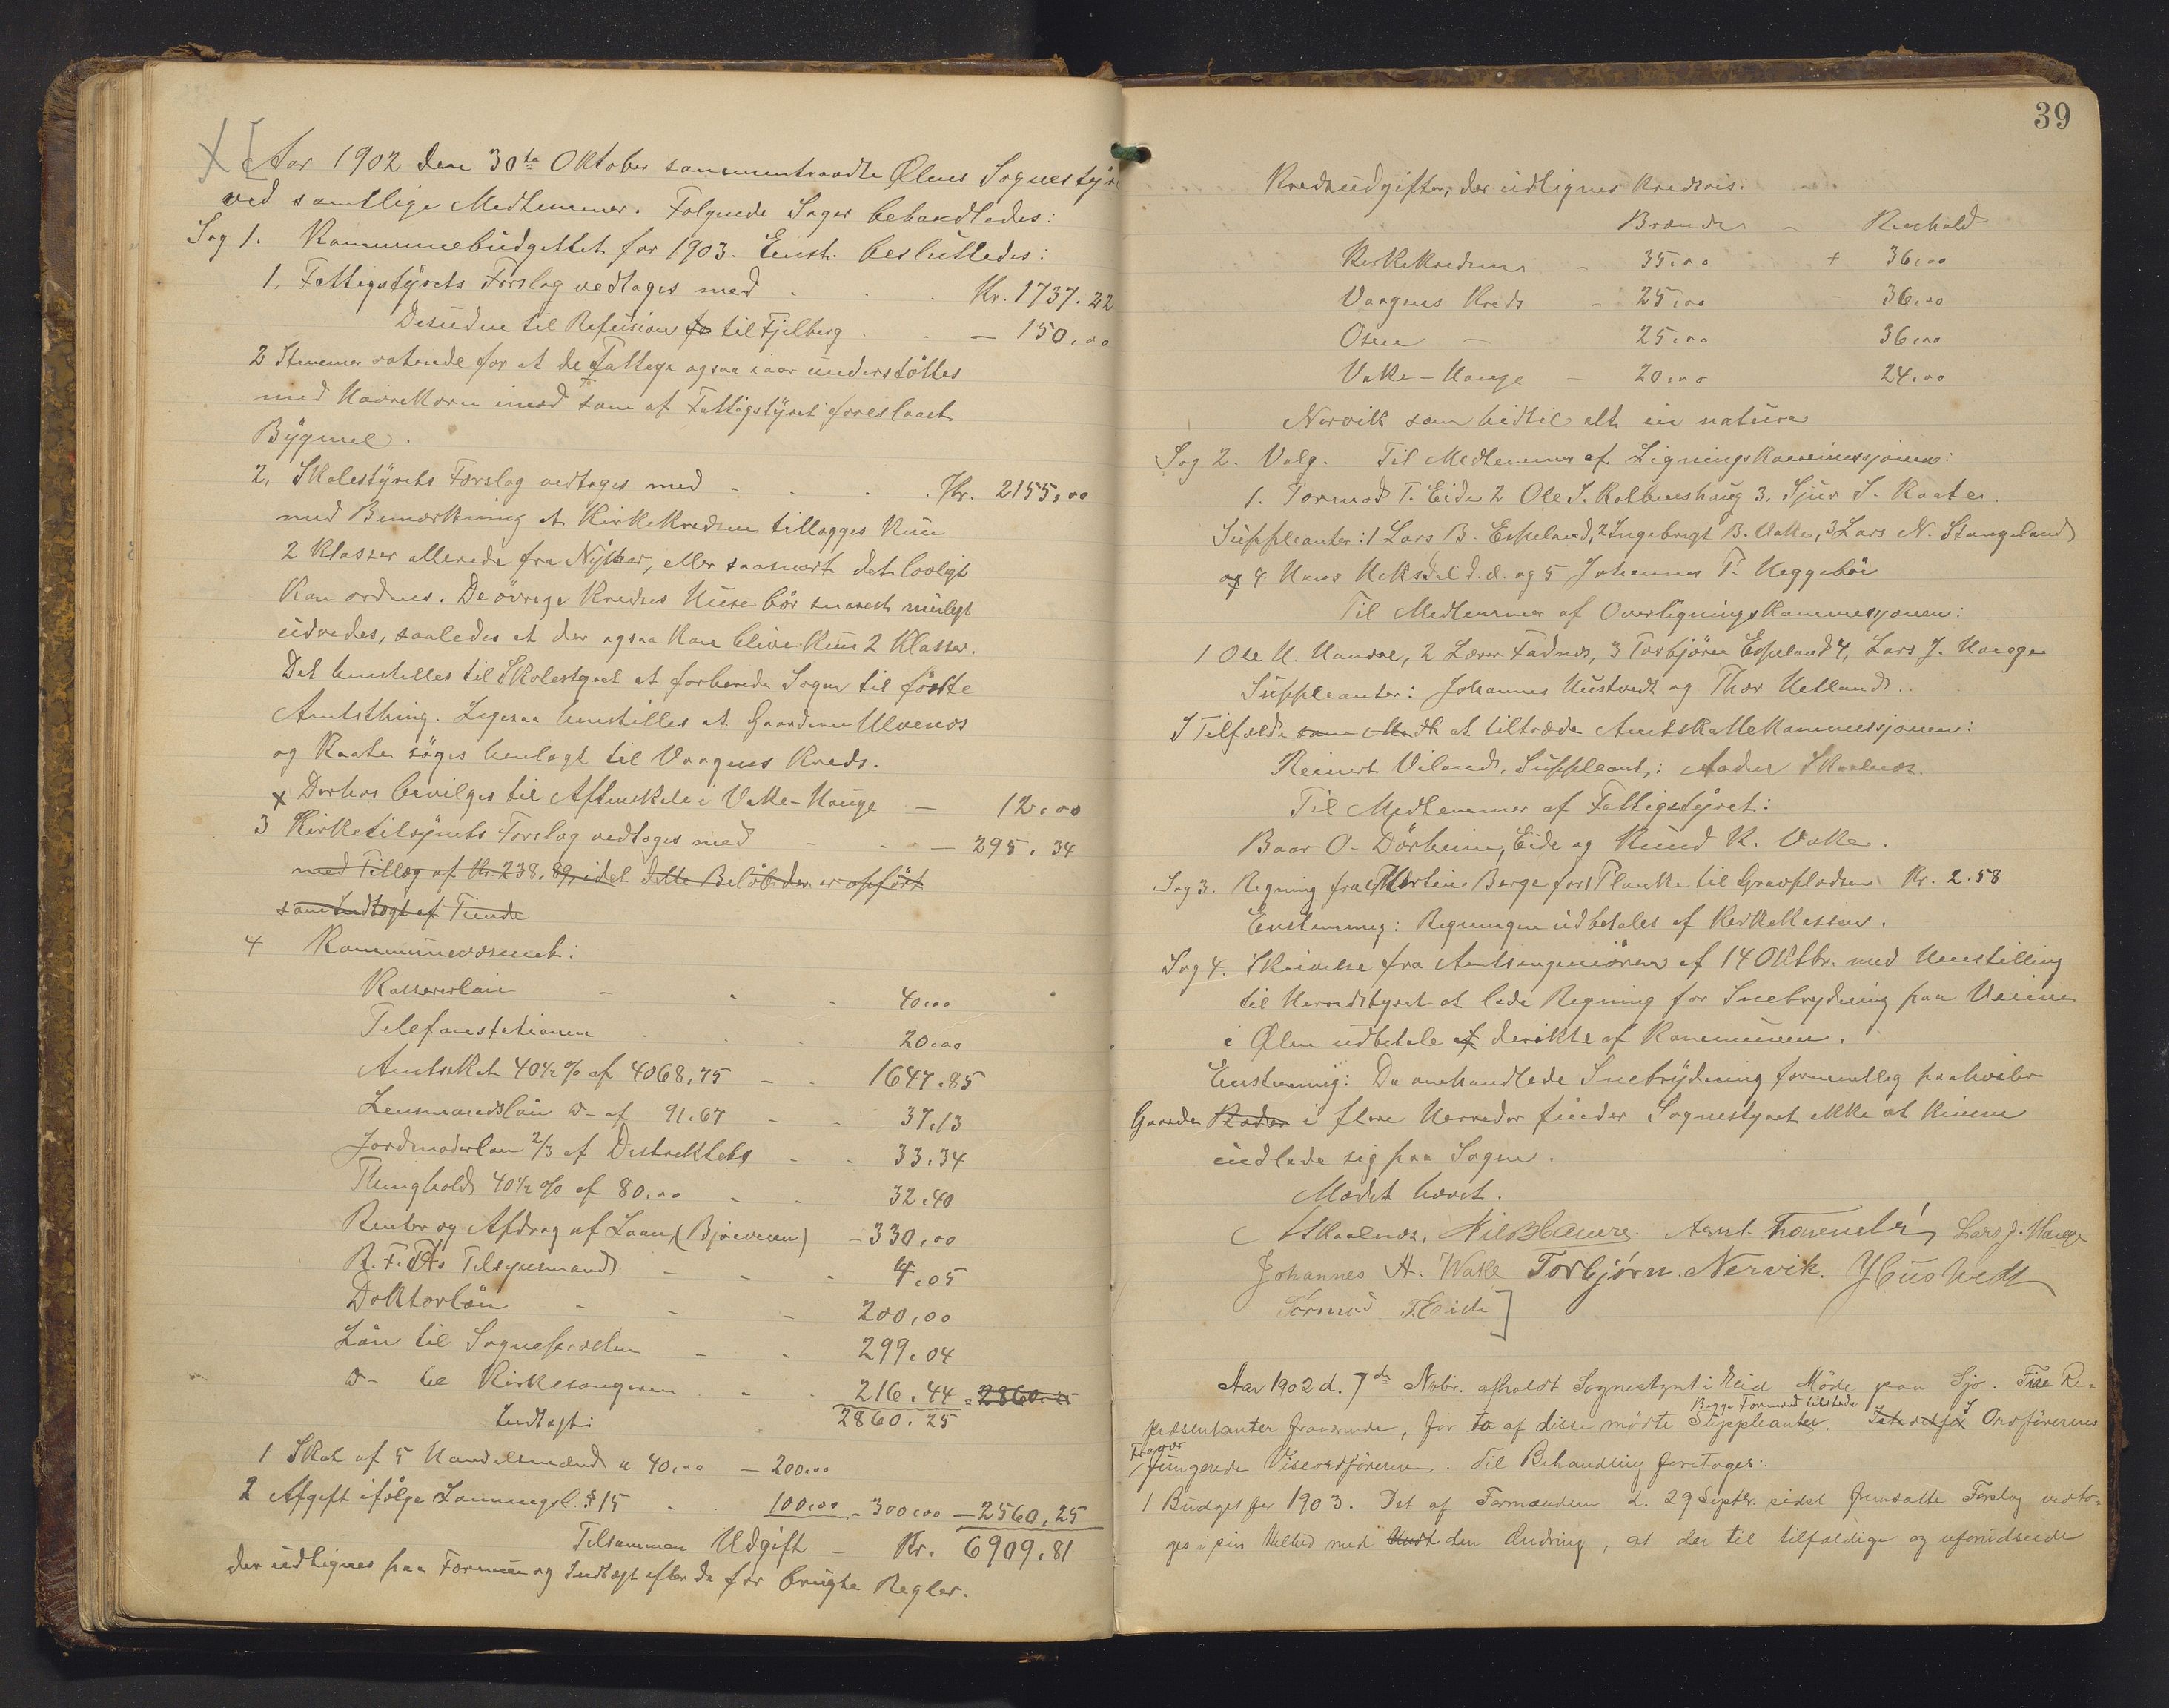 Aar 1902 den 30te Oktober sammentraadte Ølens Sognestyre
ved samtlige Medlemmer. Følgende Sager behandledes:
Sag 1. Kommunebudgettet for 1903. Enst. besluttedes:
1. Fattigstyrets Forslag vedtages med . . . Kr. 1737.22
Desuden til Refusion fo til Fjelberg . . — 150.00
2 Stemmer voterede for at de Fattige ogsaa iaar understöttes
med Havrekorn imod som af Fattigstyret foreslaaet
Bygmel.
2, Skolestyrets Forslag vedtages med - . . . Kr. 2155,00
med Bemærkning at Kirkekredsen tillægges kun
2 Klasser allerede fra Nytaar, eller saasnart det lovligt
kan ordnes. De övrige Kredses Huse bör snarest muligt
udvides, saaledes at der ogsaa kan blive kun 2 Klasser.
Det henstilles til Skolestyret at forberede Sagen til förste
Amtsthing. Ligesaa henstilles at Gaardene Ulvenes
og Kaate söges henlagt til Vaagnes Kreds.
x Derhos bevilges til Aftenskole i Vake-Hauge — 12.00
3 Kirketilsynets Forslag vedtages med - - — 295.34
med Tillæg af Kr. 238.89, idet dette Belöb der er opfört
som Indtægt af Tiende
4 Kommunevæsenet:
Kassererlön - - - 40.00
Telefonstationen . . . 20.00
Amtsskat 40½ % af 4068,75 - - 1647.85
Lensmandslön D- af 91.67 - - 37.13
Jordmoderlön 2/3 af Distriktets - - 33.34
Thinghold 40½ % af 80.00 - - 32.40
Renter og Afdrag af Laan (Bjoaveien) - 330,00
Tilsynsmand - - - 4.05
Doktorlön - - - 200,00
Lön til Sognefərdelen - - 299.04
D- til Kirkesangeren - - 216.44 = 2860.25
Indtægt: 2860.25
1 Skat af 5 Handelsmænd a 40,00 — 200.00
2 Afgift ifølge Lovens § 15 - . 100.00 - 300.00 — 2560.25
Tilsammen Udgift — Kr. 6909.81
der udlignes paa Formue og Indtægt efter de för brugte Regler.
39
Kredsudgifter, der udlignes kredsvis:
Brænde - Renhold
Kirkekredsen - 35.00 + 36.00
Vaagnes Kreds - 25,00 - 36.00
Osen — 25.00 36.00
Vake-Hauge — 20.00 24.00
Nervik som hidtil alt in natura
Sag 2. Valg. Til Medlemmer af Ligningskommissjonen:
1. Tormod T. Eide 2 Ole S. Kalveshaug 3. Sjur S. Kaate.
Suppleanter: 1 Lars B. Espeland, 2 Ingebrigt B. Vake, 3 Lars N. Stangeland
og 4 Hans Heksdal d. æ. og 5 Johannes T. Heggebö
Til Medlemmer af Overligningskommissjonen:
1 Ole H. Hamre, 2 Lærer Fadnes, 3 Torbjörn Espeland 4, Lars J. Hauge
Suppleanter: Johannes Hustvedt og Thor Hetland..
I Tilfælde at tiltræde Amtskattekommissjonen:
Reinert Viland. Suppleant: Aadne Skaalnes.
Til Medlemmer af Fattigstyret:
Baar O. Dörheim, Eide og Knud K. Vake.
Sag 3. Regning fra Martin Berge for 1 Planke til Gravpladsen Kr. 2.58
Enstemmig: Regningen udbetales af Kirkekassen.
Sag 4. Skrivelse fra Amtsingeniören af 14 Oktbr. med Henstilling
til Herredstyret at lade Regning for Snebrydning paa Veiene
i Ølen udbetale af direkte af Kommunen.
Enstemmig: Da omhandlede Snebrydning formentlig paahviler
Gaarde Roder i flere Herreder finder Sognestyret ikke at kunne
indlade sig paa Sagen.
Mødet hævet.
A Skaalnes, Nils Hamre. Lars J. Hauge
Johannes A. Wake Torbjørn Nervik. J Hustvedt
Tormod T. Eide
Aar 1902 d. 7de Novbr. afholdt Sognestyret i Møde paa Sjo. Fire Re-
Begge Formænd tilstede
præsentanter fraværende, for to af disse mødte Suppleanter. I Ordførerens
Fravær
fungerede Viseordføreren. Til Behandling foretoges:
1 Budget for 1903. Det af Formanden d. 29 Septbr. sidst fremsatte Forslag vedto-
ges i sin Helhed med den Ændring, at der til tilfældige og uforudseede